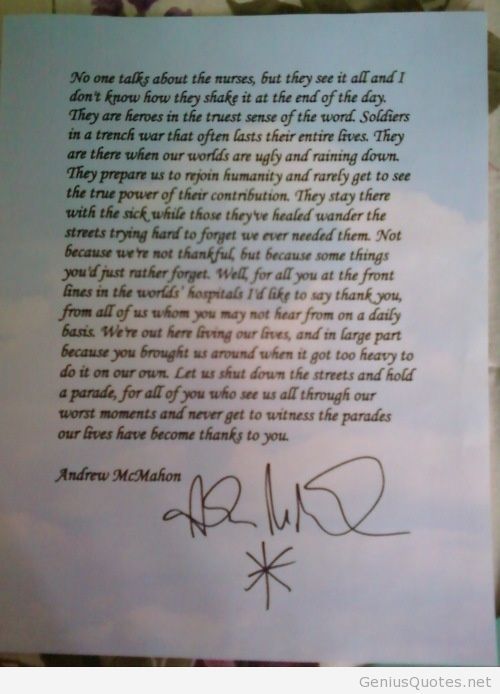 No one talks about the nurses, but they see it all and I
don't know how they shake it at the end of the day.
They are heroes in the truest sense of the word. Soldiers
in a trench war that often lasts their entire lives. They
are there when our worlds are ugly and raining down.
They prepare us to rejoin humanity and rarely get to see
the true power of their contribution. They stay there
with the sick while those they've healed wander the
streets trying hard to forget we ever needed them. Not
because we're not thankful, but because some things
you'd just rather forget. Well, for all you at the front
lines in the worlds' hospitals I'd like to say thank you,
from all of us whom you may not hear from on a daily
basis. We're out here living our lives, and in large part
because you brought us around when it got too heavy to
do it on our own. Let us shut down the streets and hold
a parade, for all of you who see us all through our
worst moments and never get to witness the parades
our lives have become thanks to you.
Andrew McMahon
GeniusQuotes.net